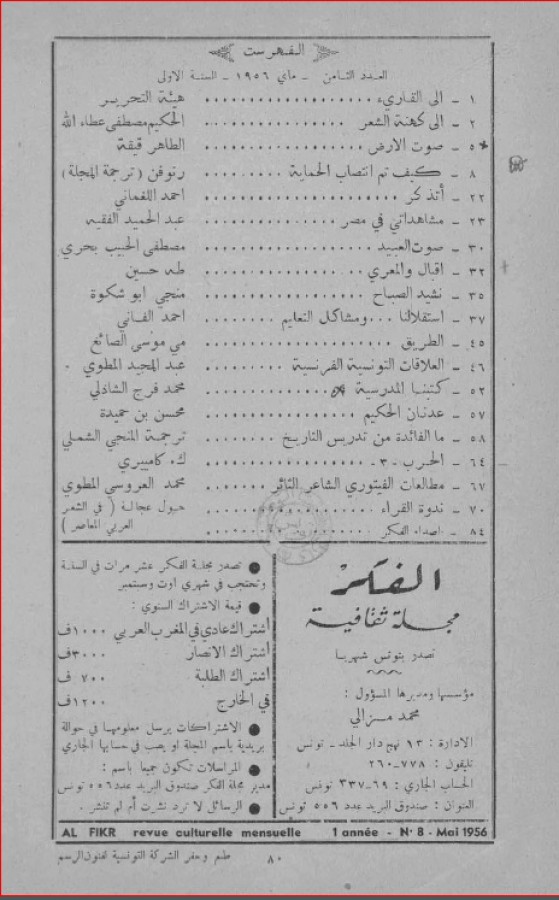 الفهرست
العدد الثامن - ماي ١٩٥٦ - السنة الاولى
١ - الى القارىء .................... هيئة التحرير
٢ - الى كهنة الشعر ................ الحكيم مصطفى عطاء الله
٥ - صوت الارض .................... الطاهر قيقة
٨ - كيف تم انتصاب الحماية ......... رنوفن ( ترجمة المجلة )
٢٢ - أتذكر .................... احمد اللغماني
٢٣ - مشاهداتي في مصر ............. عبد الحميد الفقيه
٣٠ - صوت العبيد ................ مصطفى الحبيب بحري
٣٢ - اقبال والمعري ................ طه حسين
٣٥ - نشيد الصباح ................ منجي ابو شكوة
٣٧ - استقلالنا ... ومشاكل التعليم ........ احمد الفاني
٤٥ - الطريق .................... مي موسى الصائغ
٤٦ - العلاقات التونسية الفرنسية ........ عبد المجيد المطوي
٥٢ - كتبنا المدرسية ............. محمد فرج الشاذلي
٥٧ - عدنان الحكيم ................ محسن بن حميدة
٥٨ - ما الفائدة من تدريس التاريخ ........ ترجمة المنجي الشملي
٦٤ - الحرب - ٣ - ................ ك. كامبيري
٦٧ - مطالعات الفيتوري الشاعر الثائر ........ محمد العروسي المطوي
٧٠ - ندوة القراء ................ ( في الشعر
العربي المعاصر )
٨٤ - اصداء الفكر ................
الفكر
مجلة ثقافية
تصدر بتونس شهريا
مؤسسها ومديرها المسؤول :
محمد مزالي
الادارة : ١٣ نهج دار الجلد - تونس
تليفون : ٧٧٨-٢٦٠
الحساب الجاري : ٦٩-٣٣٧ تونس
العنوان : صندوق البريد عدد ٥٥٦ تونس
● تصدر مجلة الفكر عشر مرات في السنة
وتحتجب في شهري اوت وسبتمبر
● قيمة الاشتراك السنوي :
اشتراك عادي في المغرب العربي ١٠٠٠ ف
اشتراك الانصار ٣٠٠٠ ف
اشتراك الطلبة ٧٠٠ ف
في الخارج ١٢٠٠ ف
● الاشتراكات يرسل معلومها في حوالة
بريدية باسم المجلة او يصب في حسابها الجاري
● المراسلات تكون جميعا باسم :
مدير مجلة الفكر صندوق البريد عدد ٥٥٦ تونس
● الرسائل لا ترد نشرت أم لم تنشر .
AL FIKR revue culturelle mensuelle 1 année - N° 8 - Mai 1956
٨٠ طبع وحفر الشركة التونسية لفنون الرسم